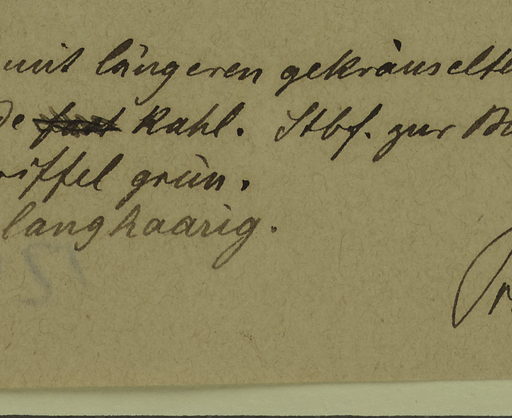 mit längeren gekräuselte
de fast kahl. Stbf. zur Ba
riffel grün.
langhaarig.